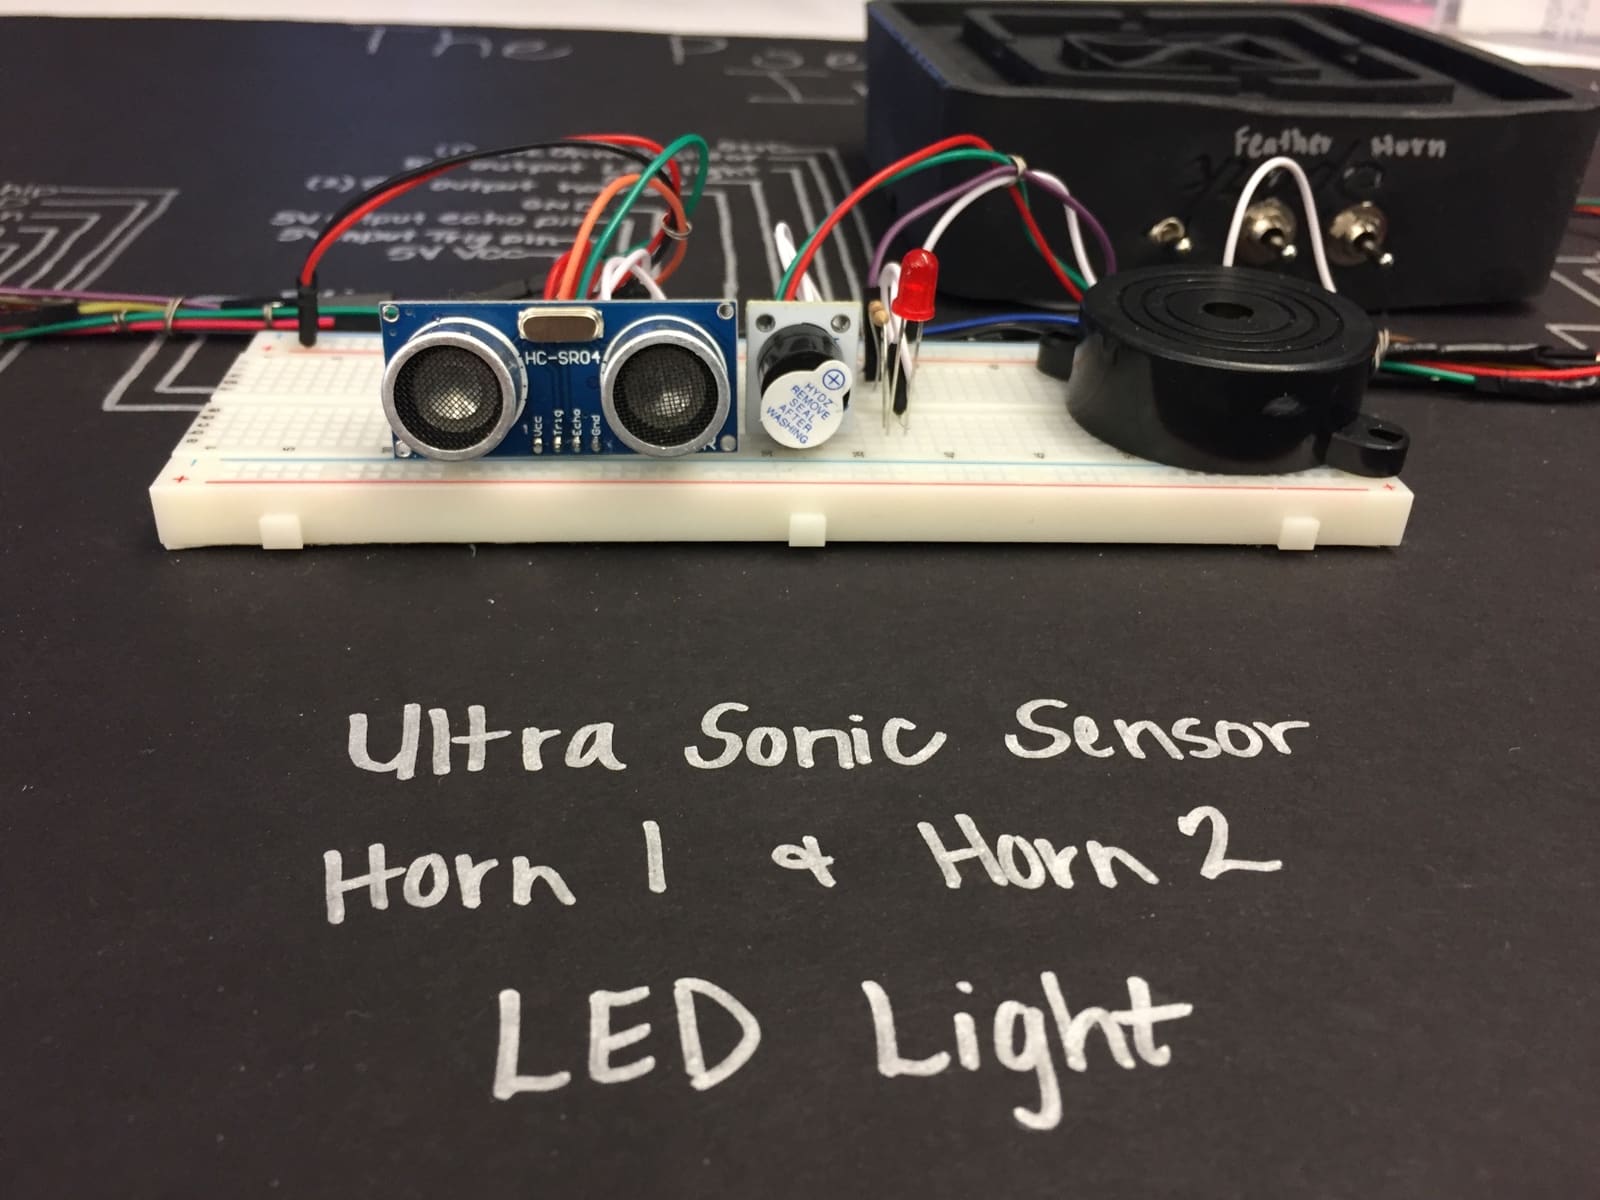 The
Feather Horn
(2)
output
GND
5V output echo pin
5V input Trig pin
5V VCC
HC-SR04
Vcc
Trig
Echo
Gnd
HYDZ
REMOVE
SEAL
AFTER
WASHING
Ultra Sonic Sensor
Horn 1 & Horn 2
LED Light